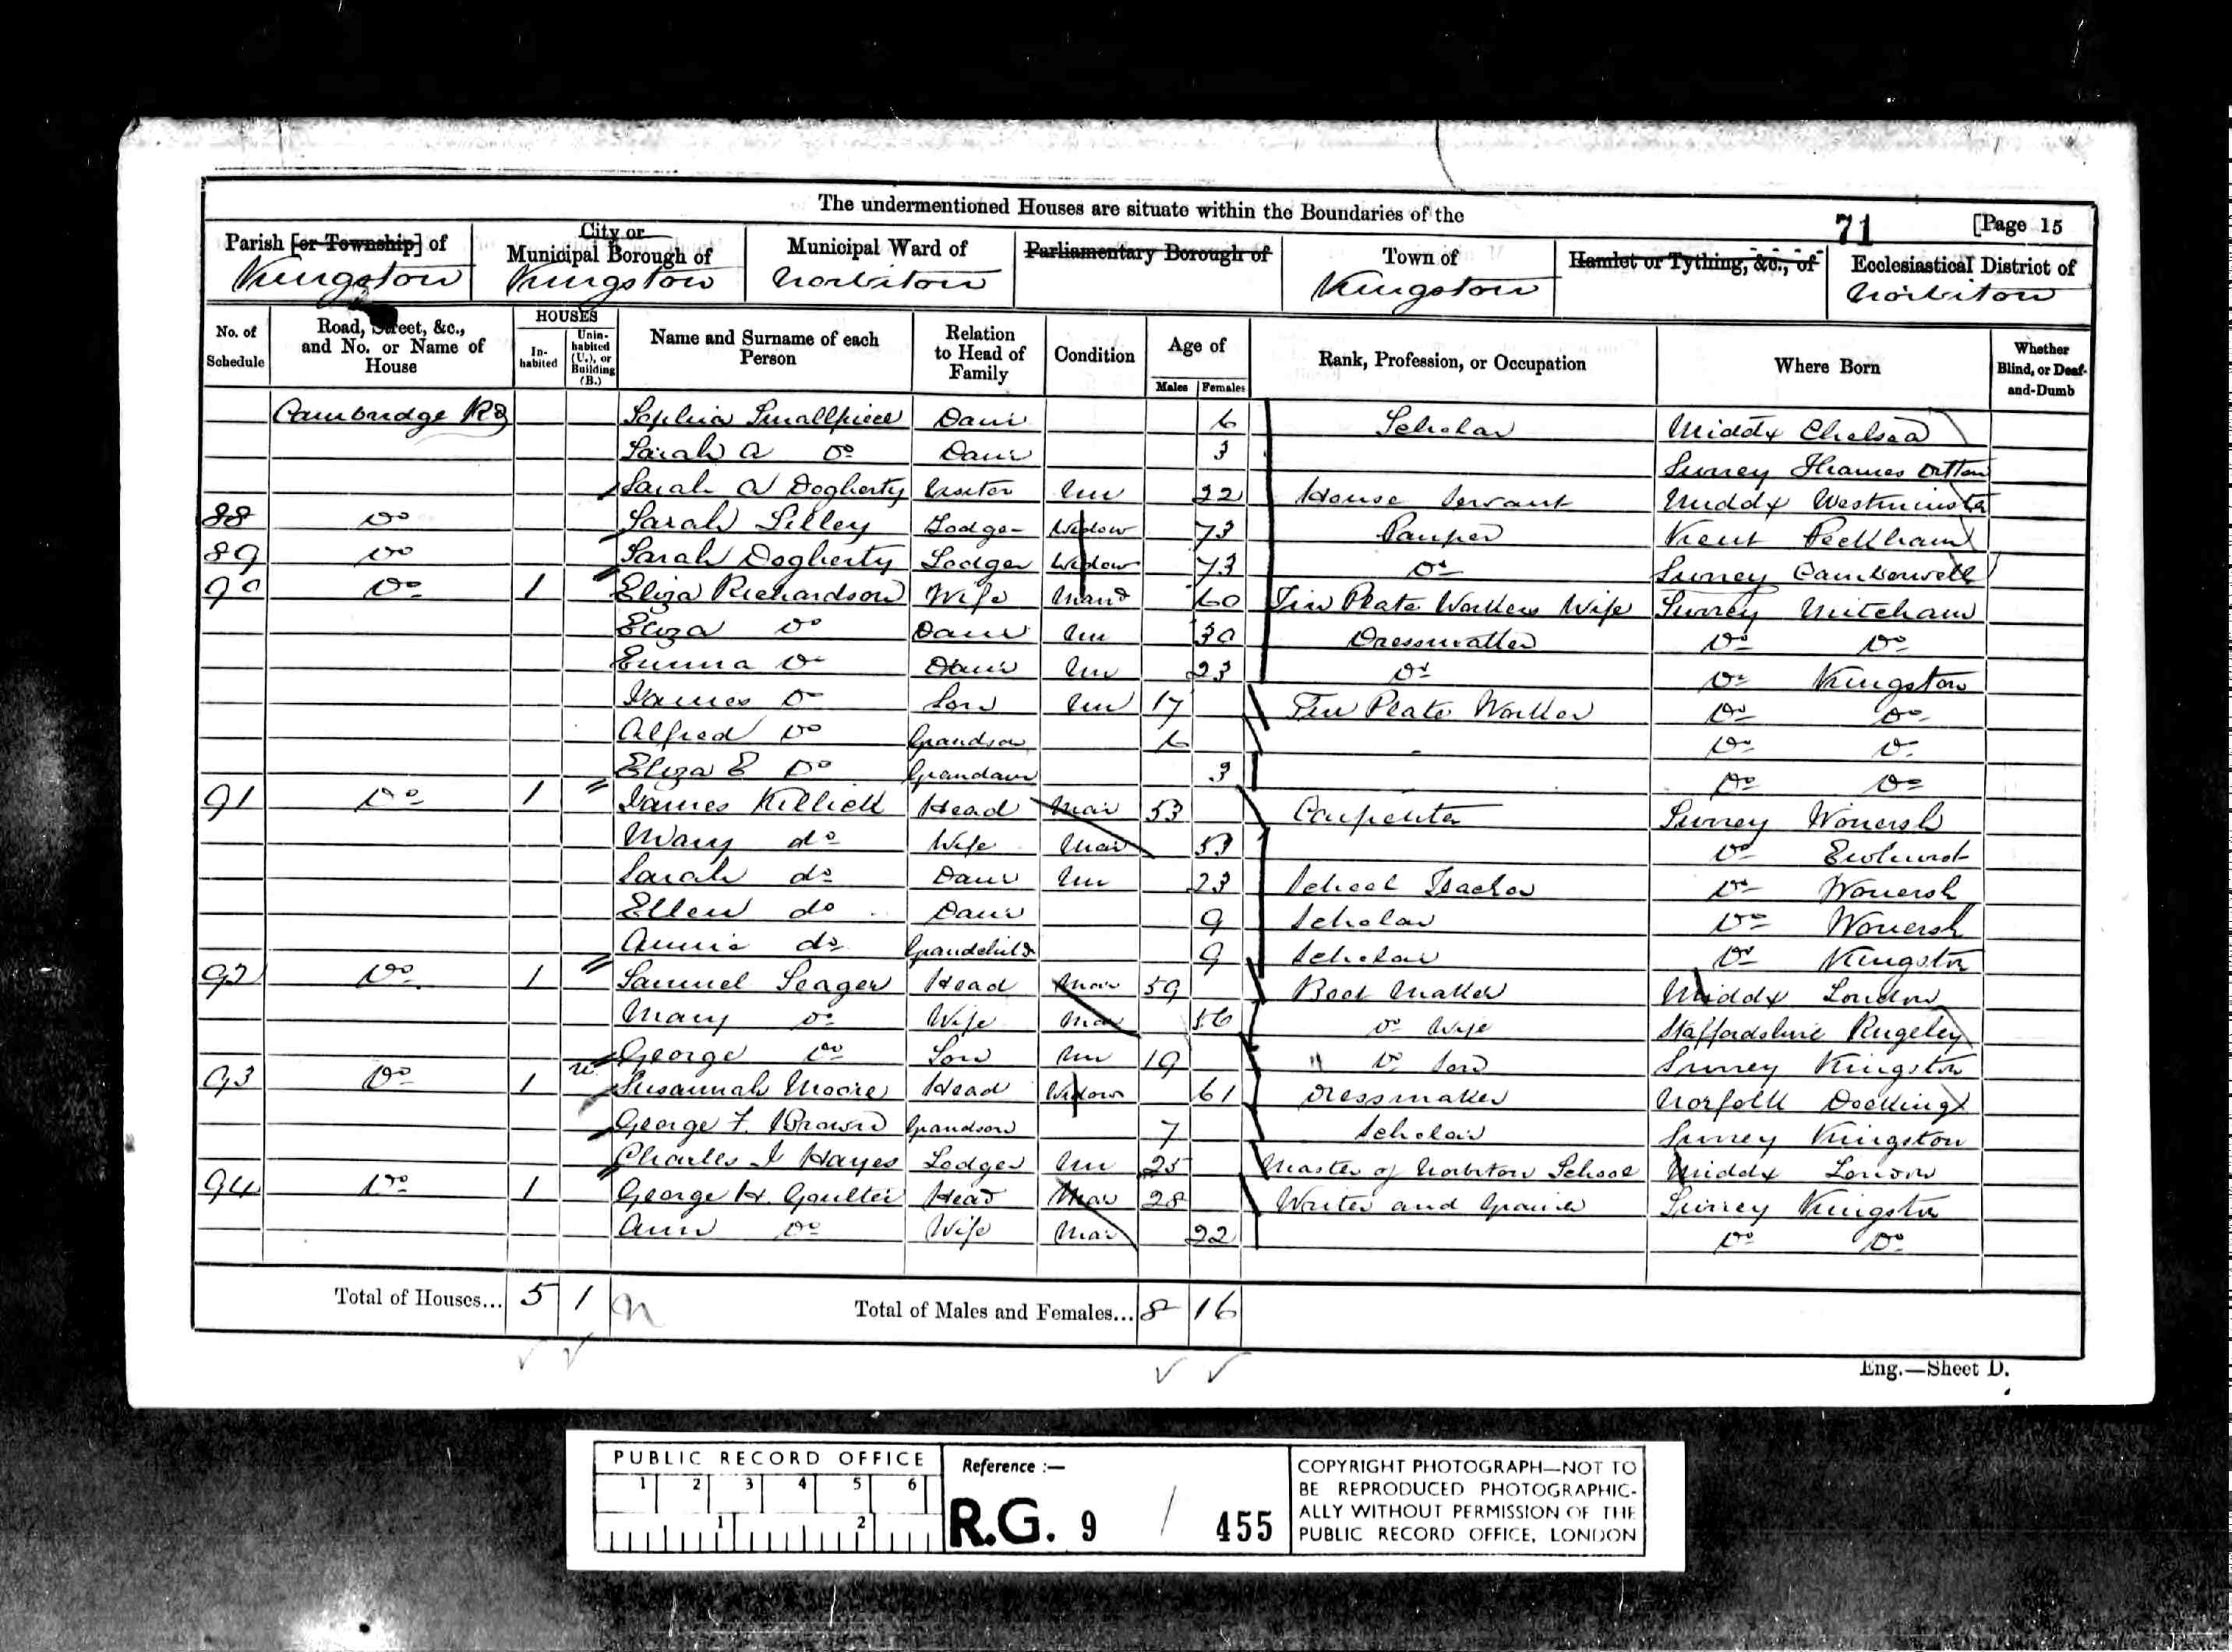 The undermentioned Houses are situate within the Boundaries of the
71 [Page 15
Parish [or Township] of City or Municipal Borough of Municipal Ward of Parliamentary Borough of Town of Hamlet or Tything, &c., of Ecclesiastical District of
Kingston Kingston Norbiton Kingston Norbiton
No. of Schedule Road, Street, &c., and No. or Name of House HOUSES Inhabited Uninhabited (U.), or Building (B.) Name and Surname of each Person Relation to Head of Family Condition Age of Males Females Rank, Profession, or Occupation Where Born Whether Blind, or Deaf-and-Dumb
Cambridge Rd Sophia Smallpiece Daur 6 Scholar Middx Chelsea
Sarah A Do Daur 3 Surrey Thames Ditton
Sarah A Dogherty Visitor Un 22 House Servant Middx Westminster
88 Do Sarah Lilley Lodger Widow 73 Pauper Kent Peckham
89 Do Sarah Dogherty Lodger Widow 73 Do Surrey Camberwell
90 Do 1 Eliza Richardson Wife Mard 60 Tin Plate Workers Wife Surrey Mitcham
Eliza Do Daur Un 30 Dressmaker Do Do
Emma Do Daur Un 23 Do Do Kingston
James Do Son Un 17 Tin Plate Worker Do Do
Alfred Do Grandson 6 Do Do
Eliza E Do Grandaur 3 Do Do
91 Do 1 James Killick Head Mar 53 Carpenter Surrey Wonersh
Mary do Wife Mar 53 Do Ewhurst
Sarah do Daur Un 23 School Teacher Do Wonersh
Ellen do Daur 9 Scholar Do Wonersh
Annie do Grandchild 9 Scholar Do Kingston
92 Do 1 Samuel Seager Head Mar 59 Boot Maker Middx London
Mary Do Wife Mar 56 Do Wife Staffordshire Rugeley
George Do Son Un 19 " Do Son Surrey Kingston
93 Do 1 u Susannah Moore Head Widow 61 Dressmaker Norfolk Docking
George F. Brown Grandson 7 Scholar Surrey Kingston
Charles I Hayes Lodger Un 25 Master of Norbiton School Middx London
94 Do 1 George H. Goulter Head Mar 28 Writer and Grainer Surrey Kingston
Ann Do Wife Mar 22 Do Do
Total of Houses... 5 1 Total of Males and Females... 8 16
Eng.—Sheet D.
PUBLIC RECORD OFFICE
1 2 3 4 5 6
1 2
Reference :—
R.G. 9 / 455
COPYRIGHT PHOTOGRAPH—NOT TO
BE REPRODUCED PHOTOGRAPHIC-
ALLY WITHOUT PERMISSION OF THE
PUBLIC RECORD OFFICE, LONDON